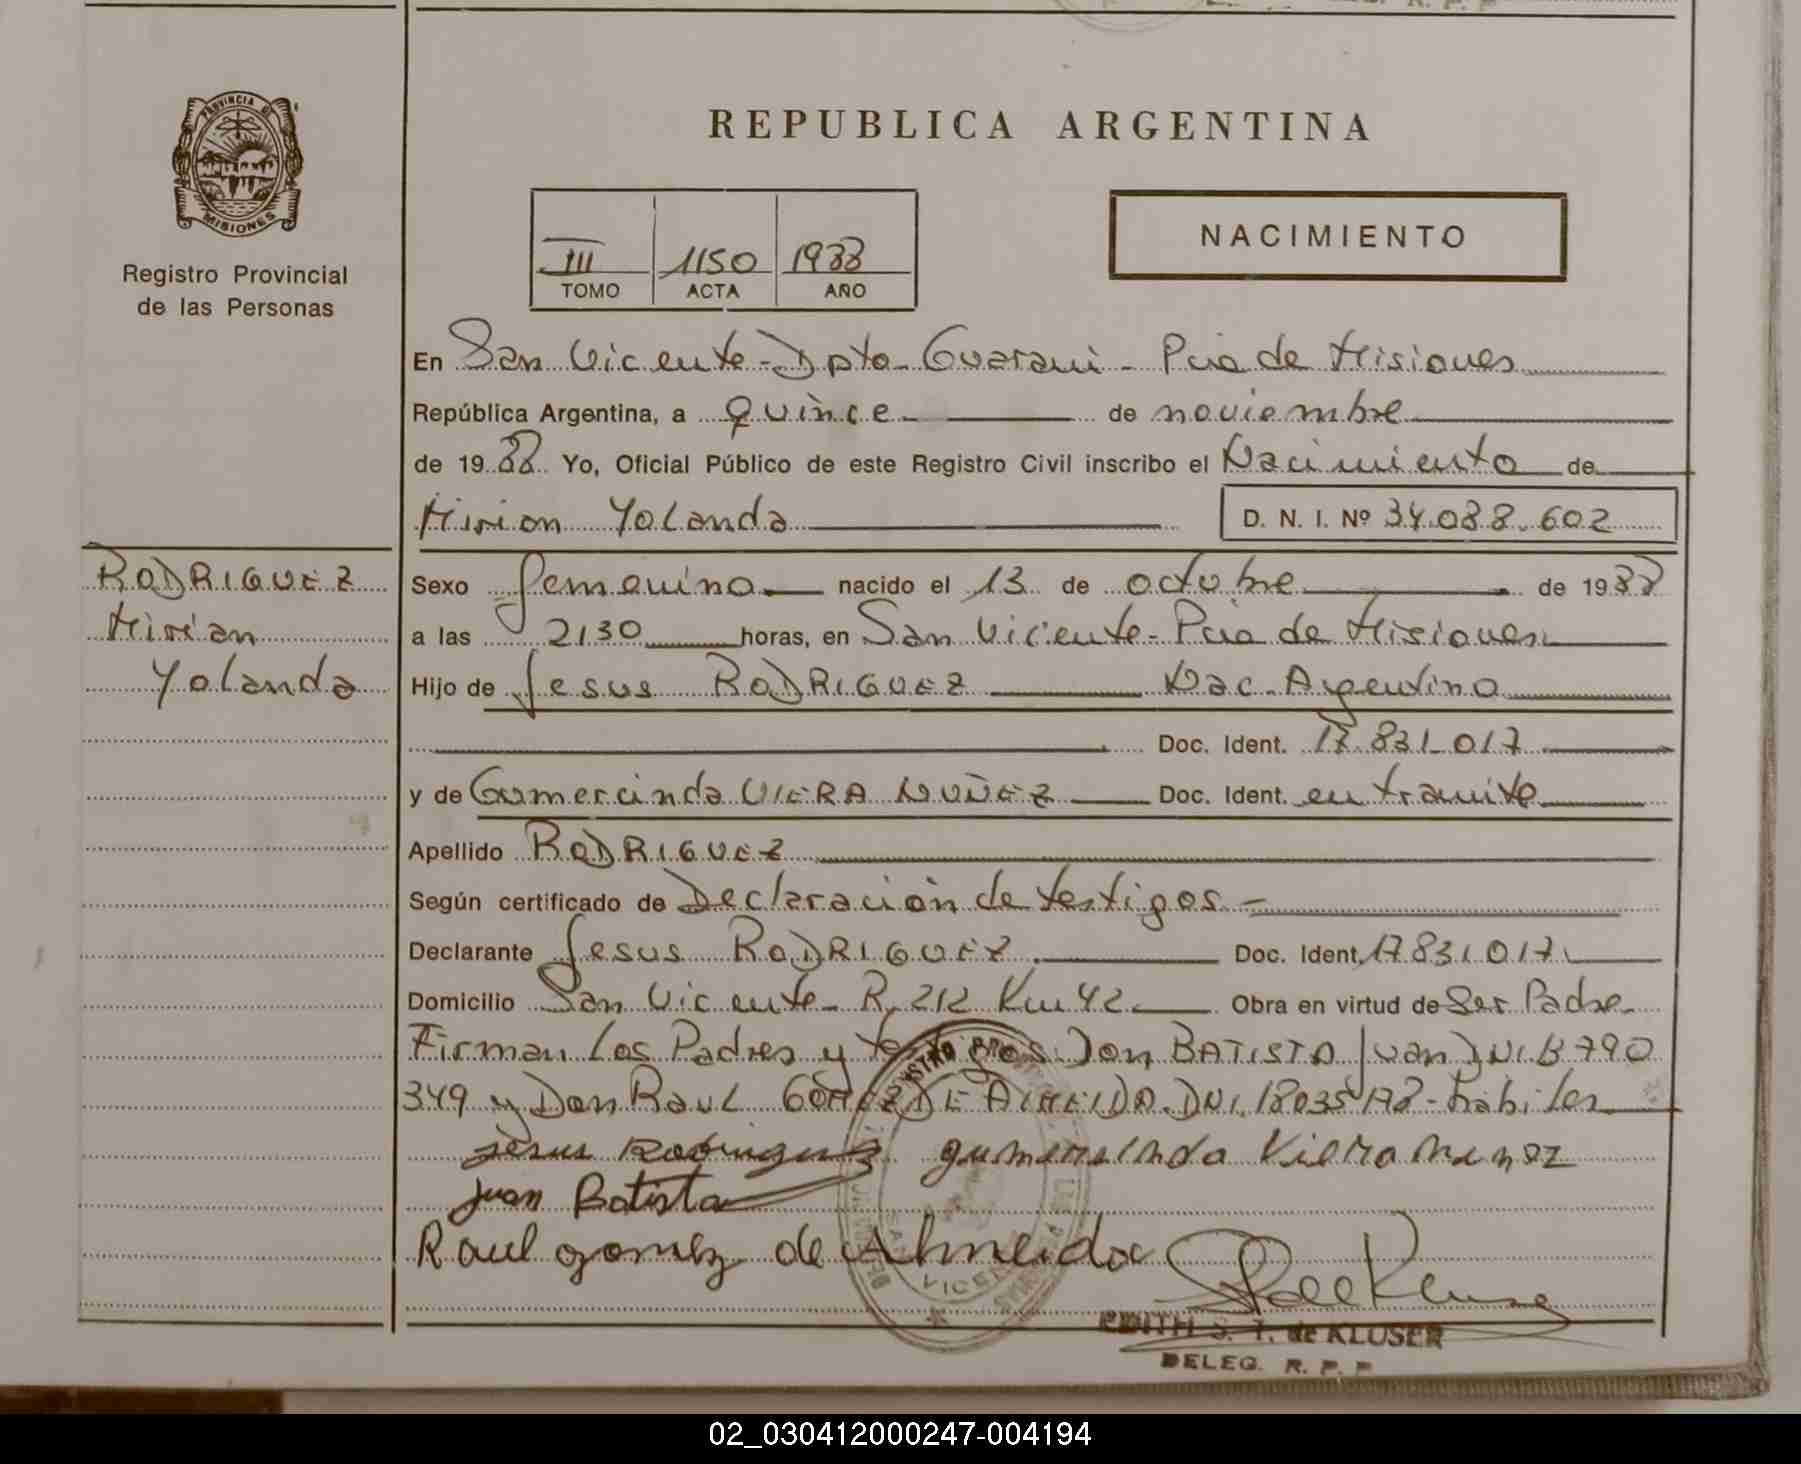 PROVINCIA DE
MISIONES
Registro Provincial
de las Personas
REPUBLICA ARGENTINA
III 1150 1988
TOMO ACTA AÑO
NACIMIENTO
En San Vicente - Dpto - Guarani - Pcia de Misiones
República Argentina, a quince de noviembre
de 1988 Yo, Oficial Público de este Registro Civil inscribo el Nacimiento de
Mirian Yolanda D. N. I. Nº 34.088.602
RODRIGUEZ
Mirian
Yolanda
Sexo femenino nacido el 13 de octubre de 1988
a las 2130 horas, en San Vicente - Pcia de Misiones
Hijo de Jesus RODRIGUEZ Nac. Argentino
Doc. Ident. 17.831.017
y de Gumercinda VIERA NUÑEZ Doc. Ident. en tramite
Apellido RODRIGUEZ
Según certificado de Declaración de testigos -
Declarante Jesus RODRIGUEZ Doc. Ident. 17831017
Domicilio San Vicente - R. 212 Km 42 Obra en virtud de Ser Padre
Firman los Padres y testigos Don BATISTA Juan DNI 790
349 y Don Raul GOMEZ DE ALMEIDA. DNI. 18035178 - habiles
Jesus Rodriguez gumercinda Viera nunez
juan Batista
Raul gomez de Almeida
EDITH S. T. de KLUSER
DELEG. R. P. P
02_030412000247-004194